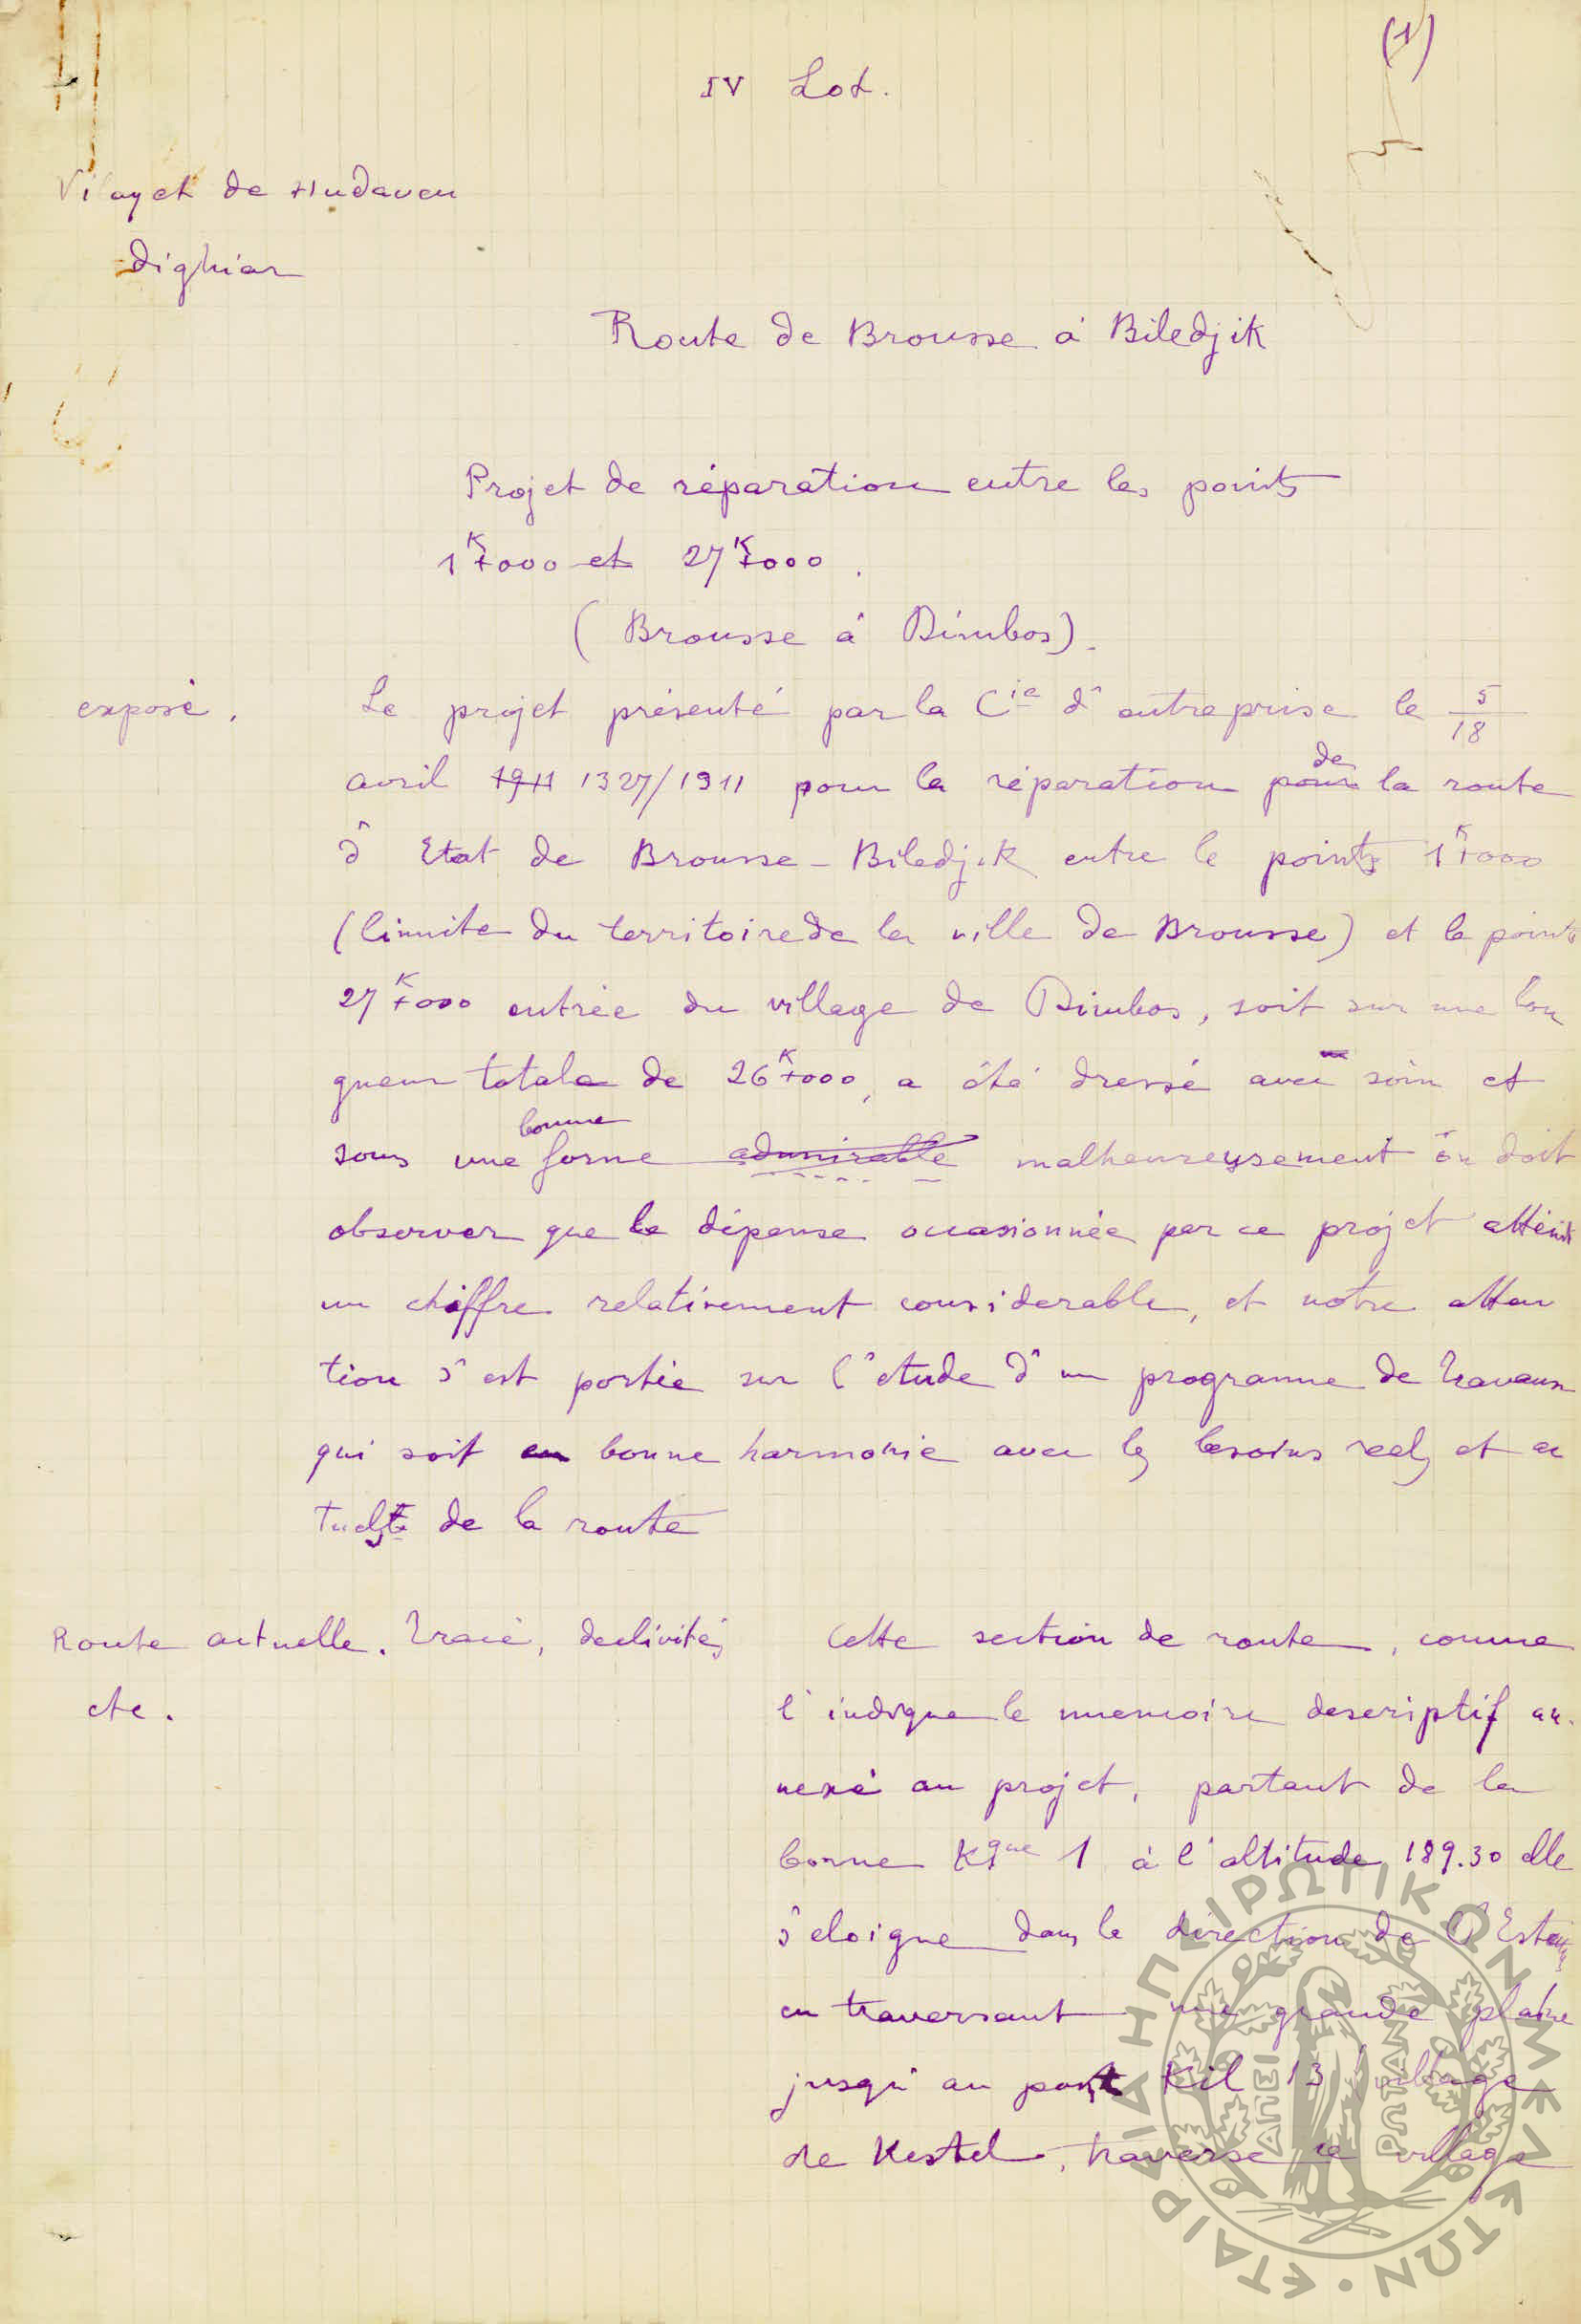 (1)
IV Lot.
Vilayet de Hudaven
dighiar
Route de Brousse à Biledjik
Projet de réparation entre les points
1K+000 et 27K+000.
(Brousse à Dimbos).
exposé. Le projet présenté par la Cie d'entreprise le 5/18
avril 1911 1327/1911 pour la réparation pour de la route
d'Etat de Brousse - Biledjik entre le points 1K+000
(limite du territoire de la ville de Brousse) et le point
27K+000 entrée du village de Dimbos, soit sur une lon
gueur totale de 26K+000, a été dressé avec soin et
sous une bonne forme admirable malheureusement on doit
observer que la dépense occasionnée par ce projet atteint
un chiffre relativement considerable, et notre atten
tion s'est portée sur l'etude d'un programme de travaux
qui soit en bonne harmonie avec les besoins reels et ac
tuels de la route
Route actuelle. Tracé, declivités Cette section de route, comme
etc. l'indique le memoire descriptif an.
nexé au projet, partant de la
borne Kque 1 à l'altitude 189.30 elle
s'eloigne dans la direction de l'Est
en traversant une grande plaine
jusqu'au point Kil 13 village
de Kestel, traverse ce village
ΕΤΑΙΡΕΙΑ ΗΠΕΙΡΩΤΙΚΩΝ ΜΕΛΕΤΩΝ
ΑΠΕΙΡΩΤΑΝ